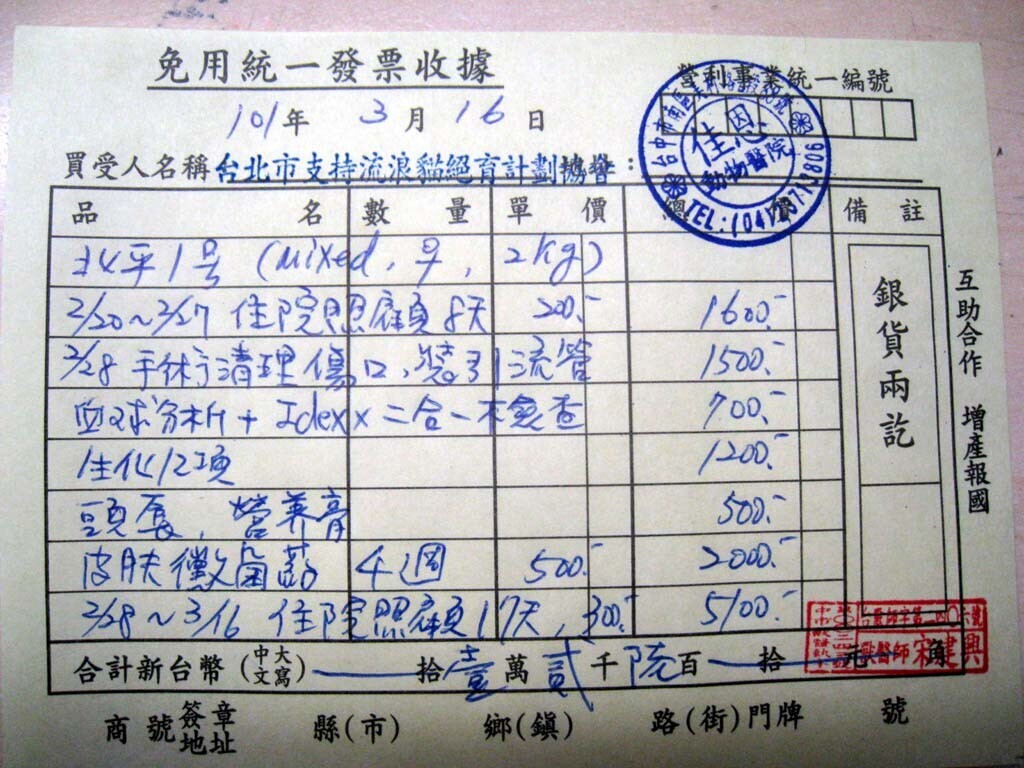 免用統一發票收據
營利事業統一編號
101年 3月 16日
買受人名稱 台北市支持流浪貓絕育計劃協會:
佳恩
動物醫院
品名 數量 單價 總價 備註
北平1号 (Mixed, 早, 2kg)
2/20~2/27 住院照顧 8天 200.- 1600.-
2/28 手術清理傷口、裝引流管 1500.-
血球分析 + Idexx 二合一檢查 700.-
生化12項 1200.-
頭套, 營养膏 500.-
皮肤黴菌葯 4週 500.- 2000.-
2/28~3/16 住院照顧 17天, 300.- 5100.-
銀貨兩訖
互助合作 增產報國
合計新台幣(中文大寫) 拾壹萬貳千陸百拾元角
獸醫師 宋建興
商號簽章地址 縣(市) 鄉(鎮) 路(街)門牌 號